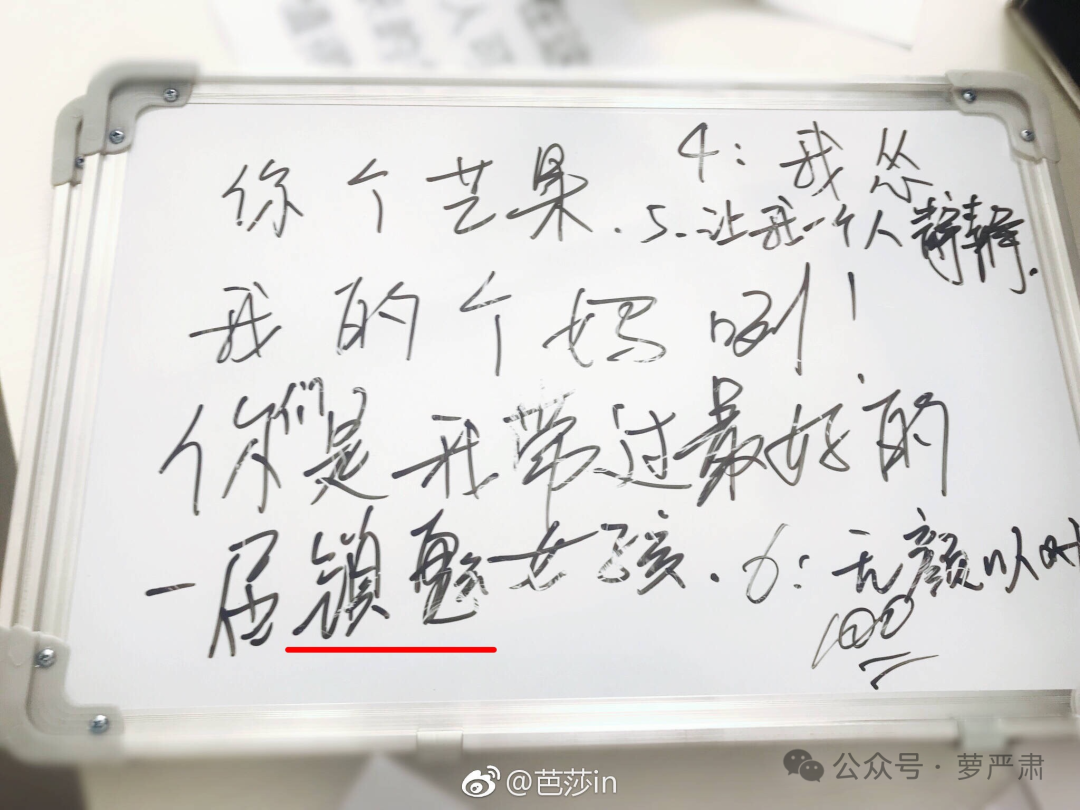 你个艺果.
4：我怂
5.让我一个人静静.
我的个妈咧！
你们是我带过最好的
一届镇魂女孩.
6：无颜以对
100
@芭莎in
公众号·萝严肃